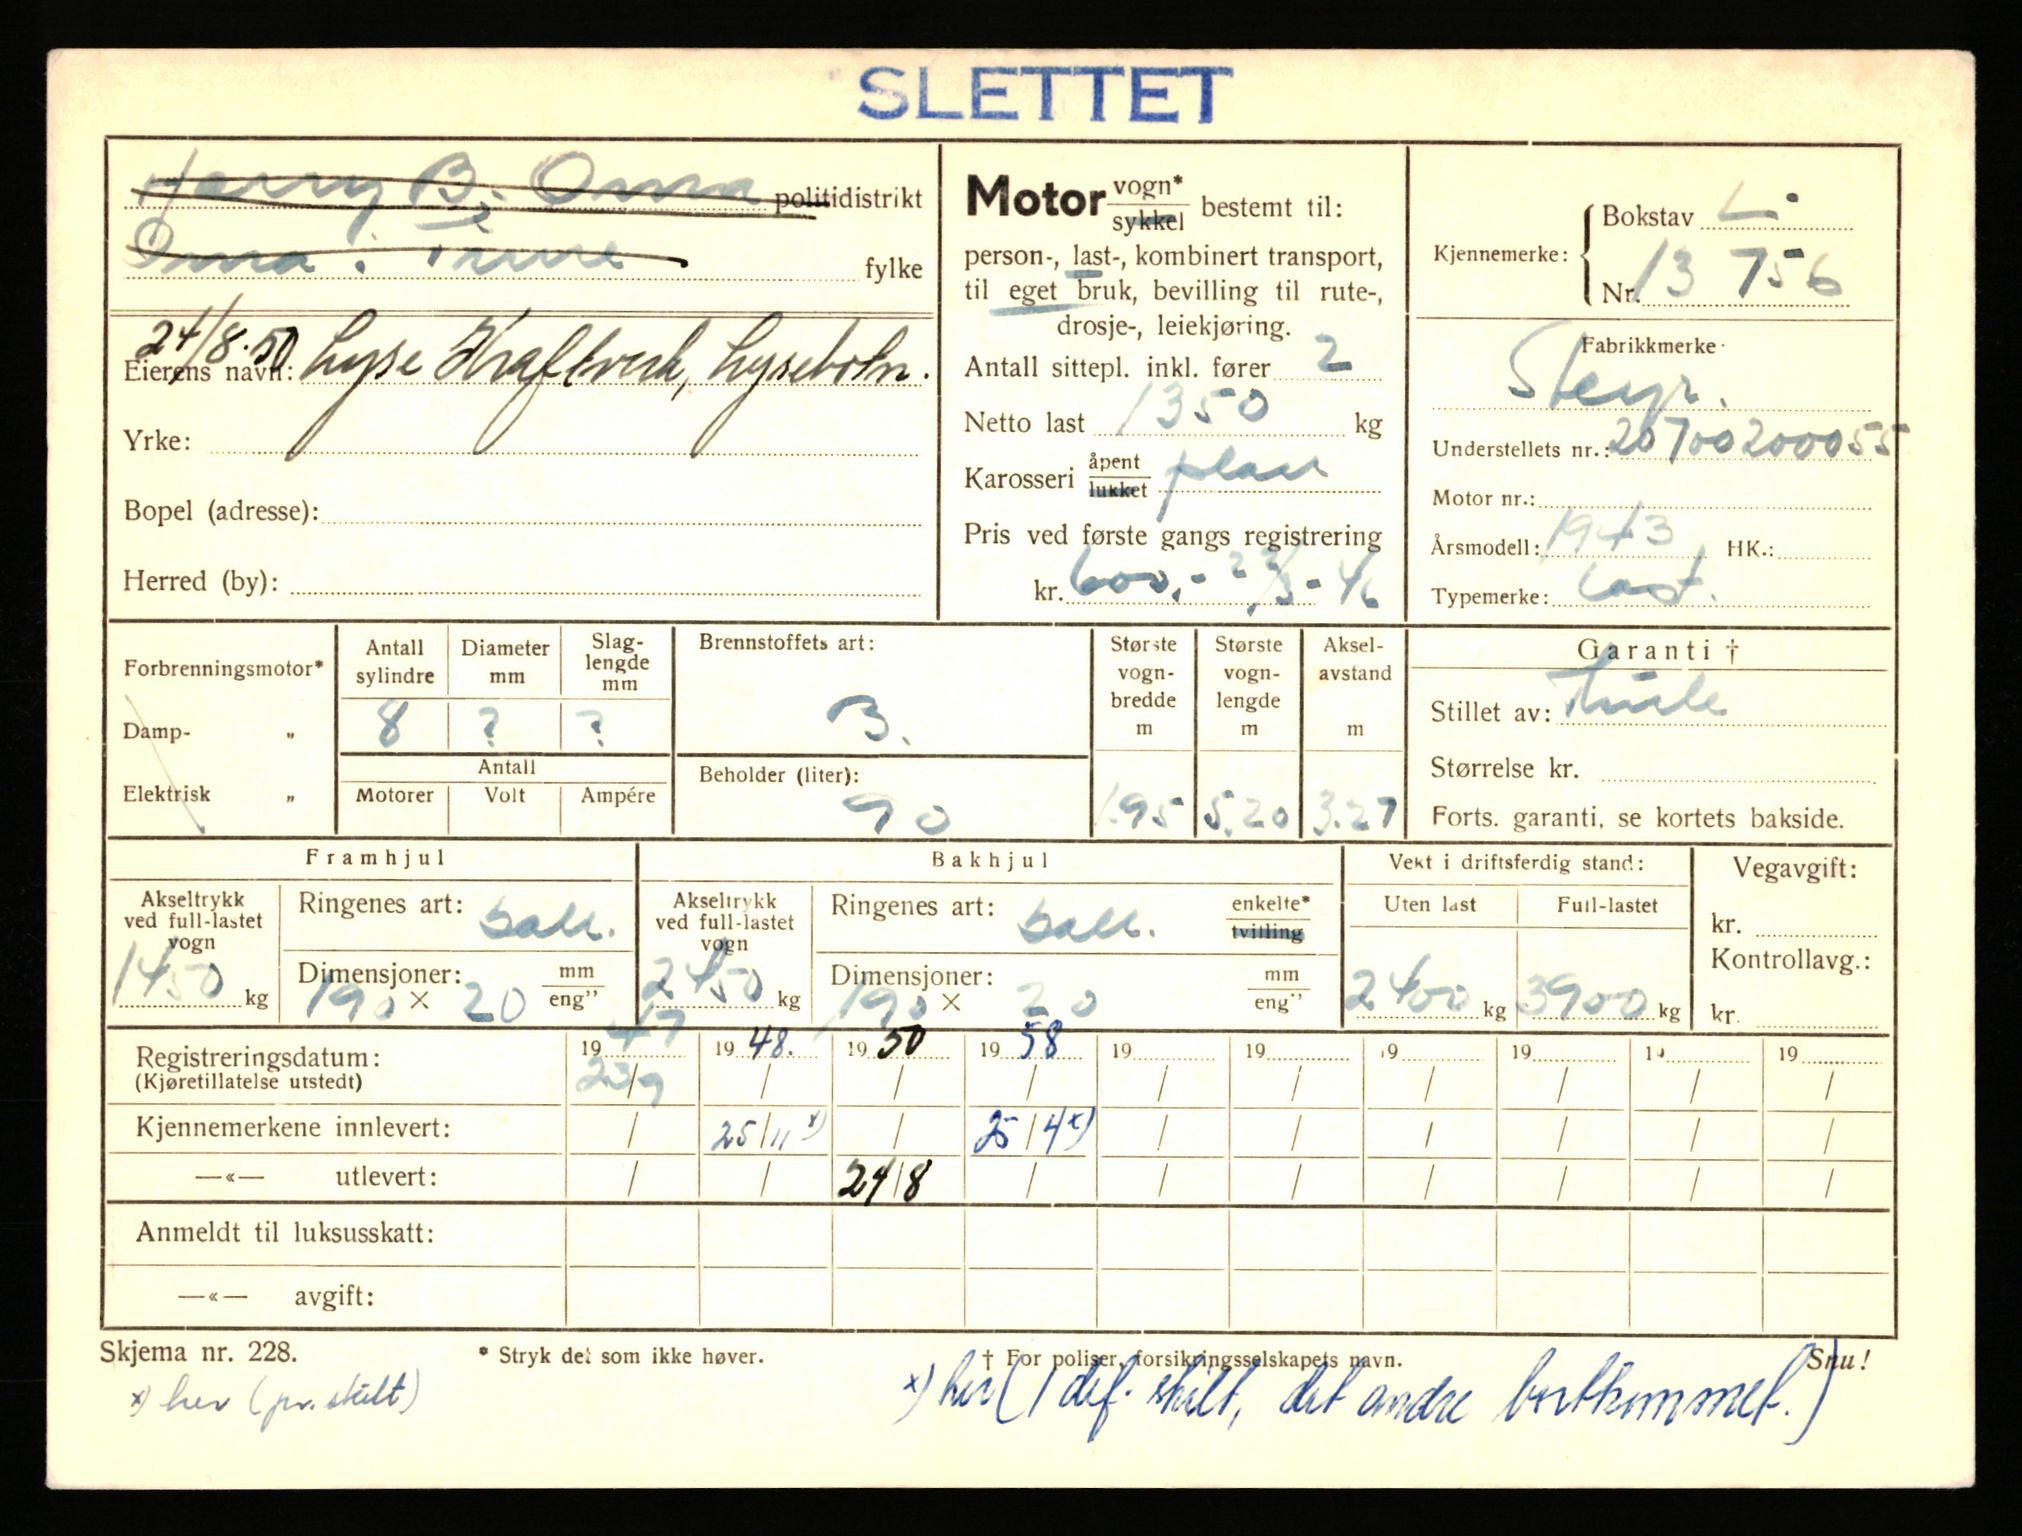 SLETTET
Harry B. Omra politidistrikt
fylke
Motor vogn* / sykkel bestemt til:
person-, last-, kombinert transport,
til eget bruk, bevilling til rute-,
drosje-, leiekjøring.
Antall sittepl. inkl. fører 2
Netto last 1350 kg
Karosseri åpent / lukket plan
Pris ved første gangs registrering
kr. 600,- 22/3-46
Kjennemerke: Bokstav L.
Nr. 13 756
Fabrikkmerke
Steyr.
Understellets nr.: 20700200055
Motor nr.:
Årsmodell: 1943 HK.:
Typemerke: Last.
24/8.50 Lyse Kraftverk, Lysebotn.
Eierens navn:
Yrke:
Bopel (adresse):
Herred (by):
Forbrenningsmotor*
Damp- „
Elektrisk „
Antall sylindre Diameter mm Slaglengde mm
8 ? ?
Antall
Motorer Volt Ampére
Brennstoffets art:
B.
Beholder (liter):
90
Største vognbredde m 1.95
Største vognlengde m 5.20
Akselavstand m 3.27
Garanti †
Stillet av:
Størrelse kr.
Forts. garanti, se kortets bakside.
Framhjul
Akseltrykk ved full-lastet vogn 1450 kg
Ringenes art: ball.
Dimensjoner: 190 × 20 mm / eng"
Bakhjul
Akseltrykk ved full-lastet vogn 2450 kg
Ringenes art: ball. enkelte* / tvilling
Dimensjoner: 190 × 20 mm / eng"
Vekt i driftsferdig stand:
Uten last Full-lastet
2400 kg 3900 kg
Vegavgift:
kr.
Kontrollavg.:
kr.
Registreringsdatum: 19 47 19 48. 19 50 19 58 19 19 19 19 19 19
(Kjøretillatelse utstedt) 23/9 / / / / / / / / /
Kjennemerkene innlevert: / 25/11 x) / 25/4 x) / / / / / /
—«— utlevert: / / 24/8 / / / / / / /
Anmeldt til luksusskatt:
—«— avgift:
Skjema nr. 228. * Stryk det som ikke høver. † For poliser, forsikringsselskapets navn. Snu!
x) her (pr. skilt) x) her (1 def. skilt, det andre bortkommet.)